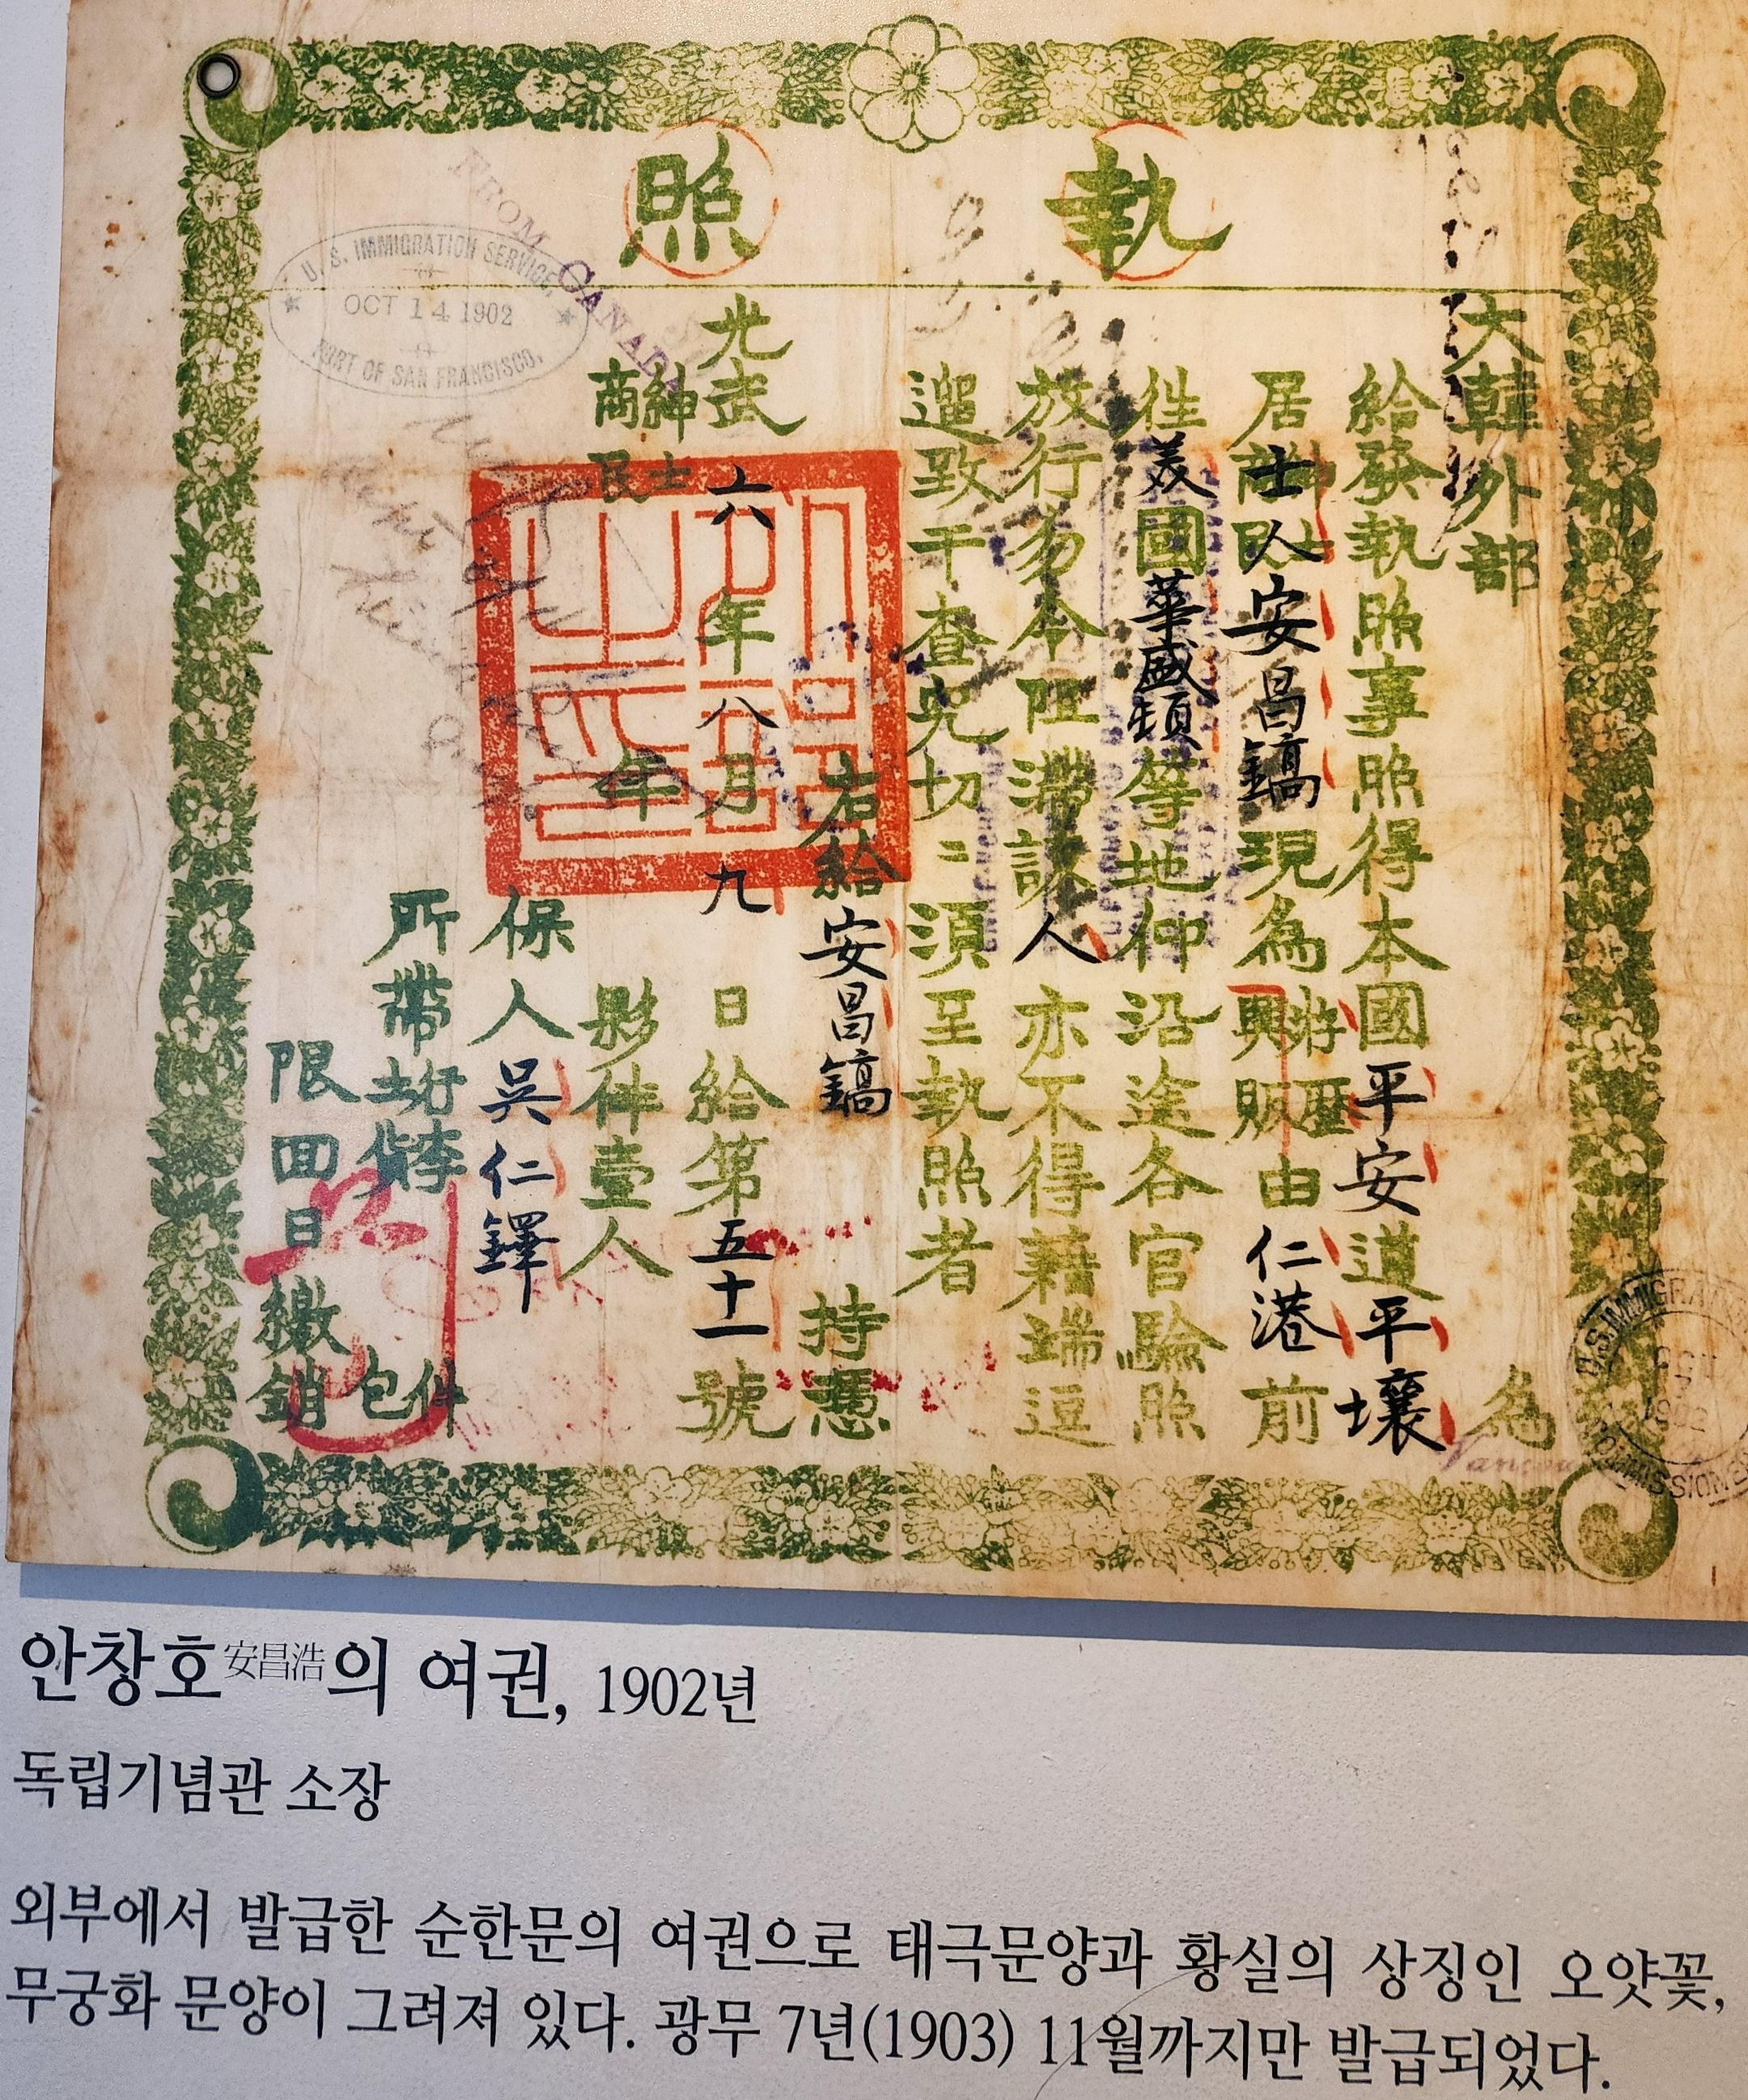 執照
大韓外部 為
給發執照事照得本國平安道平壤
居紳士商民士人安昌鎬現為游歷興販由仁港前
徃美國華盛頓等地仰沿途各官驗照
放行勿令阻滯該人亦不得藉端逗
遛致干查究切〻須至執照者
右給安昌鎬 持憑
光武六年八月九日給第五十一號
紳士商民 年 夥伴壹人
保人吳仁鐸
所帶行李土貨 件包
限回日繳銷
FROM CANADA
U. S. IMMIGRATION SERVICE,
OCT 14 1902
PORT OF SAN FRANCISCO.
U.S. IMMIGRA
1902
안창호安昌浩의 여권, 1902년
독립기념관 소장
외부에서 발급한 순한문의 여권으로 태극문양과 황실의 상징인 오얏꽃,
무궁화 문양이 그려져 있다. 광무 7년(1903) 11월까지만 발급되었다.